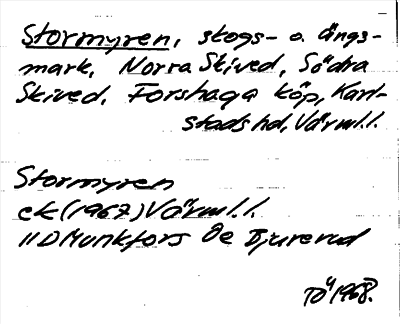 Stormyren, skogs- o. ängs-
mark, Norra Skived, Södra
Skived, Forshaga köp, Karl-
stads hd, Värml.l.
Stormyren
ek (1967) Värml.l.
11D Munkfors 0e Bjurerud
Tö 1968.